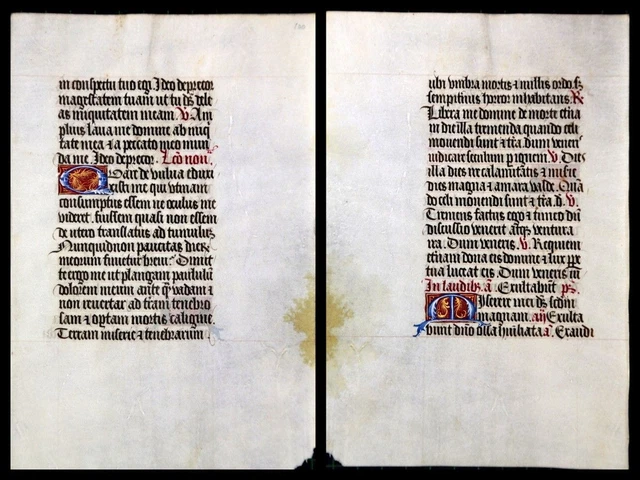 in conspectu tuo egi. Ideo deprecor
magestatem tuam ut tu ds dele
as iniquitatem meam. V. Am
plius laua me domine ab iniq
tate mea ⁊ a peccato meo mun
da me. Ideo deprecor. Lco non.
Quare de vulua eduxi
xisti me qui vtinam
consumptus essem ne oculus me
videret. fuissem quasi non essem
de vtero translatus ad tumulu
Nunquid non paucitas dier
meorum finietur breui. Dimit
te ergo me ut plangam paululu
dolorem meum ante q vadam ⁊
non reuertar ad tram tenebro
sam ⁊ optam mortis caligine.
Terram miserie ⁊ tenebrarum
ubi vmbra mortis ⁊ nullus ordo. s
sempitnus horror inhabitans. R
Libera me domine de morte etna
in die illa tremenda quando celi
mouendi sunt ⁊ tra. dum veneris
iudicare seculum p ignem. V. Dies
illa dies ire calamitatis ⁊ miserie
dies magna ⁊ amara valde. Quā
do celi mouendi sunt ⁊ tra. V.
Tremens factus ego ⁊ timeo dū
discussio venerit atq ventura
ira. Dum veneris. V. Requiem
etnam dona eis domine ⁊ lux ppe
tua luceat eis. Dum veneris iu
In laudib. a. Exultabūt ps.
Miserere mei ds scdm
magnam. añ Exulta
bunt dno ossa humiliata. a. Exaudi